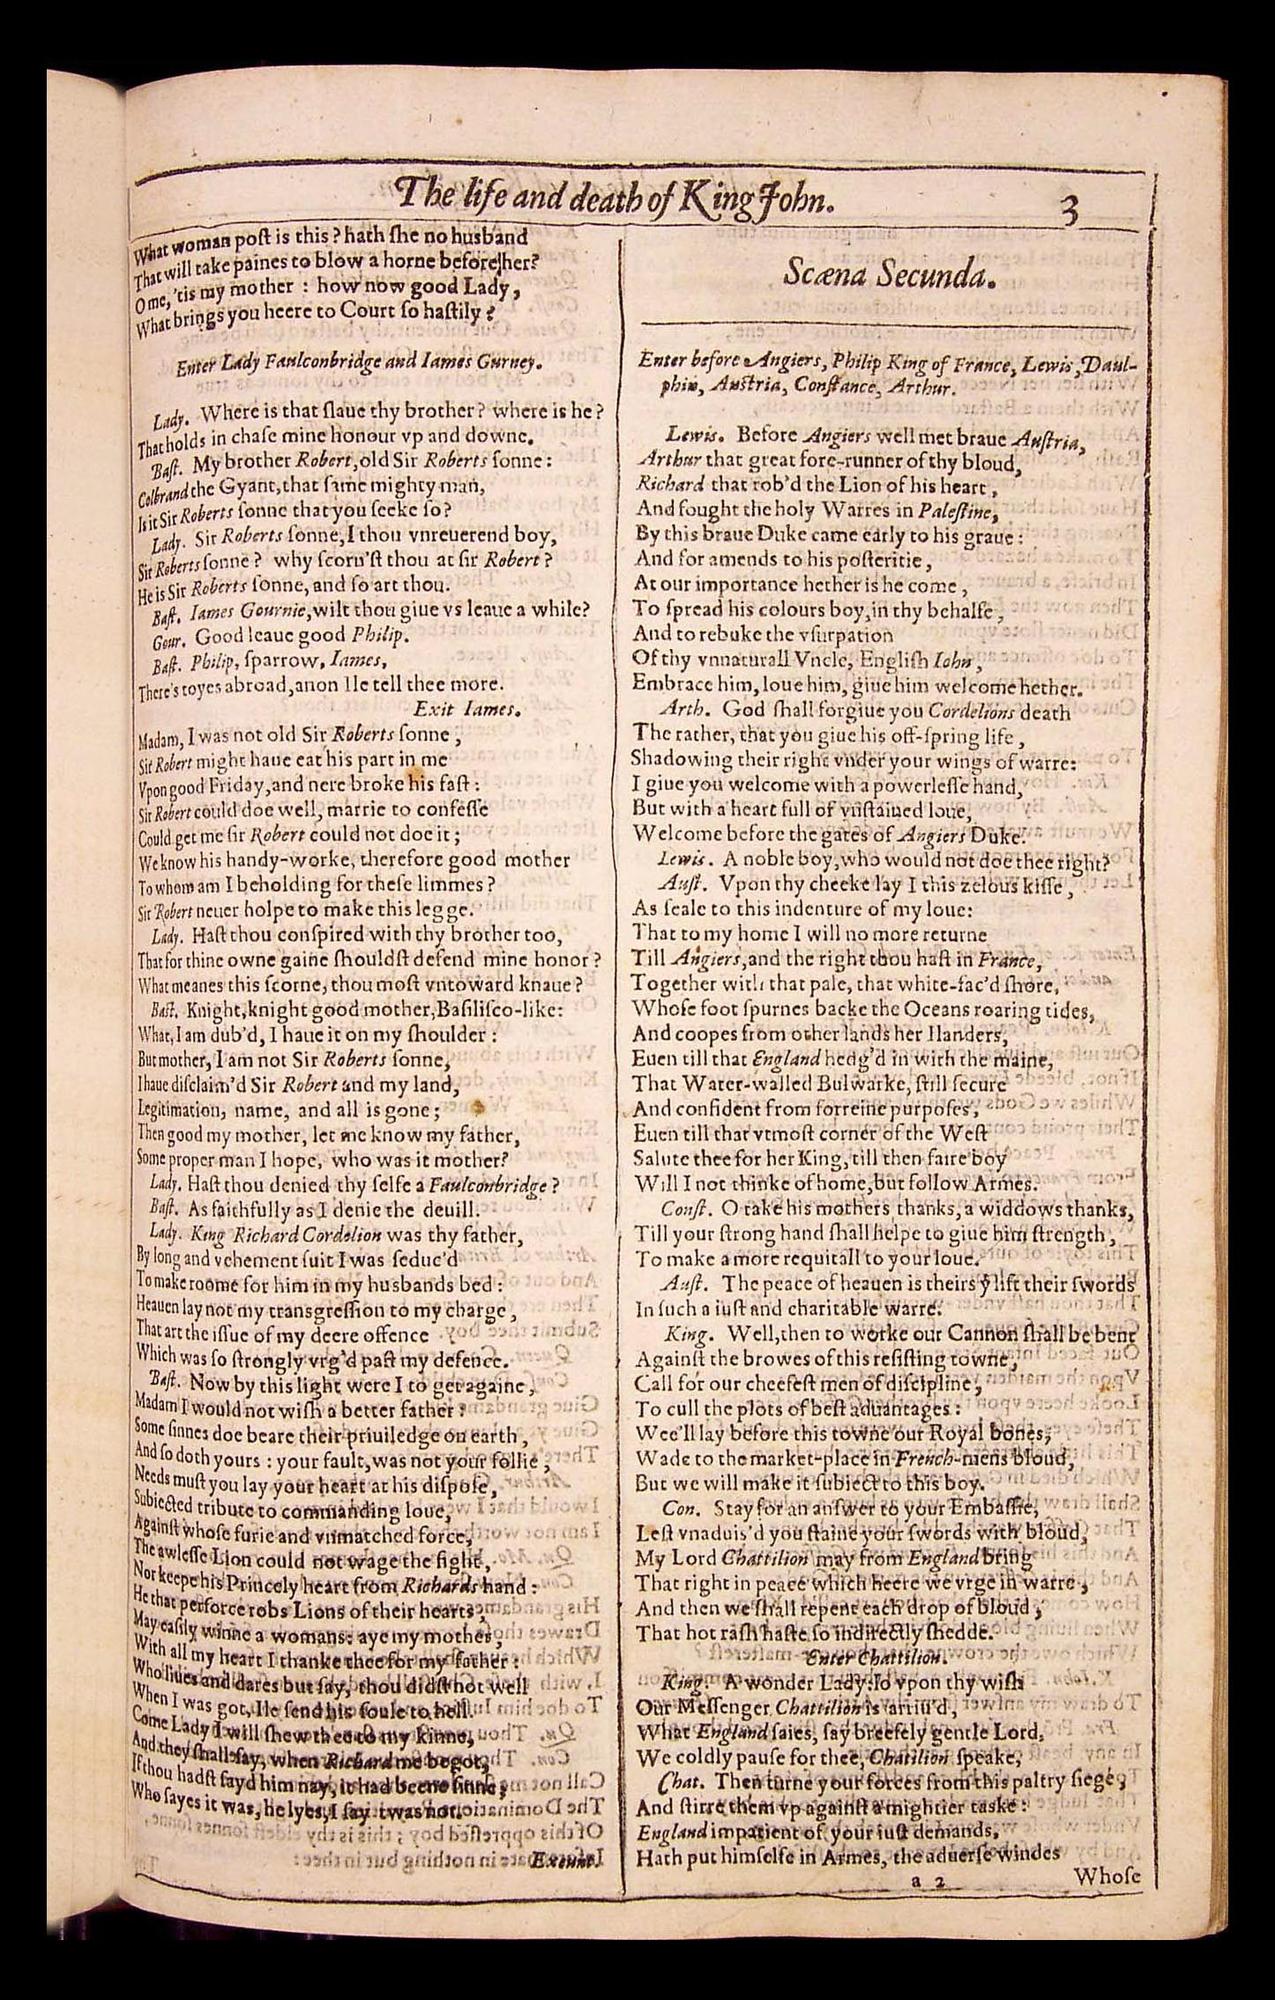 The life and death of King John.
3
What woman post is this? hath she no husband
That will take paines to blow a horne before her?
O me, 'tis my mother : how now good Lady,
What brings you heere to Court so hastily?
Enter Lady Faulconbridge and Iames Gurney.
Lady. Where is that slaue thy brother? where is he?
That holds in chase mine honour vp and downe.
Bast. My brother Robert, old Sir Roberts sonne:
Colbrand the Gyant, that same mighty man,
Is it Sir Roberts sonne that you seeke so?
Lady. Sir Roberts sonne, I thou vnreuerend boy,
Sir Roberts sonne? why scorn'st thou at sir Robert?
He is Sir Roberts sonne, and so art thou.
Bast. Iames Gournie, wilt thou giue vs leaue a while?
Gour. Good leaue good Philip.
Bast. Philip, sparrow, Iames,
There's toyes abroad, anon Ile tell thee more.
Exit Iames.
Madam, I was not old Sir Roberts sonne,
Sir Robert might haue eat his part in me
Vpon good Friday, and nere broke his fast:
Sir Robert could doe well, marrie to confesse
Could get me sir Robert could not doe it;
We know his handy-worke, therefore good mother
To whom am I beholding for these limmes?
Sir Robert neuer holpe to make this legge.
Lady. Hast thou conspired with thy brother too,
That for thine owne gaine shouldst defend mine honor?
What meanes this scorne, thou most vntoward knaue?
Bast. Knight, knight good mother, Basilisco-like:
What, I am dub'd, I haue it on my shoulder:
But mother, I am not Sir Roberts sonne,
I haue disclaim'd Sir Robert and my land,
Legitimation, name, and all is gone;
Then good my mother, let me know my father,
Some proper man I hope, who was it mother?
Lady. Hast thou denied thy selfe a Faulconbridge?
Bast. As faithfully as I denie the deuill.
Lady. King Richard Cordelion was thy father,
By long and vehement suit I was seduc'd
To make roome for him in my husbands bed:
Heauen lay not my transgression to my charge,
That art the issue of my deere offence
Which was so strongly vrg'd past my defence.
Bast. Now by this light were I to get againe,
Madam I would not wish a better father:
Some sinnes doe beare their priuiledge on earth,
And so doth yours: your fault, was not your follie,
Needs must you lay your heart at his dispose,
Subiected tribute to commanding loue,
Against whose furie and vnmatched force,
The awlesse Lion could not wage the fight,
Nor keepe his Princely heart from Richards hand:
He that perforce robs Lions of their hearts,
May easily winne a womans: aye my mother,
With all my heart I thanke thee for my father:
Who liues and dares but say, thou didst not well
When I was got, Ile send his soule to hell.
Come Lady I will shew thee to my kinne,
And they shall say, when Richard me begot,
If thou hadst sayd him nay, it had beene sinne;
Who sayes it was, he lyes, I say twas not.
Exeunt.
Scæna Secunda.
Enter before Angiers, Philip King of France, Lewis, Daul-
phin, Austria, Constance, Arthur.
Lewis. Before Angiers well met braue Austria,
Arthur that great fore-runner of thy bloud,
Richard that rob'd the Lion of his heart,
And fought the holy Warres in Palestine,
By this braue Duke came early to his graue:
And for amends to his posteritie,
At our importance hether is he come,
To spread his colours boy, in thy behalfe,
And to rebuke the vsurpation
Of thy vnnaturall Vncle, English Iohn,
Embrace him, loue him, giue him welcome hether.
Arth. God shall forgiue you Cordelions death
The rather, that you giue his off-spring life,
Shadowing their right vnder your wings of warre:
I giue you welcome with a powerlesse hand,
But with a heart full of vnstained loue,
Welcome before the gates of Angiers Duke.
Lewis. A noble boy, who would not doe thee right?
Aust. Vpon thy cheeke lay I this zelous kisse,
As seale to this indenture of my loue:
That to my home I will no more returne
Till Angiers, and the right thou hast in France,
Together with that pale, that white-fac'd shore,
Whose foot spurnes backe the Oceans roaring tides,
And coopes from other lands her Ilanders,
Euen till that England hedg'd in with the maine,
That Water-walled Bulwarke, still secure
And confident from forreine purposes,
Euen till that vtmost corner of the West
Salute thee for her King, till then faire boy
Will I not thinke of home, but follow Armes.
Const. O take his mothers thanks, a widdows thanks,
Till your strong hand shall helpe to giue him strength,
To make a more requitall to your loue.
Aust. The peace of heauen is theirs yͭ lift their swords
In such a iust and charitable warre.
King. Well, then to worke our Cannon shall be bent
Against the browes of this resisting towne,
Call for our cheefest men of discipline,
To cull the plots of best aduantages:
Wee'll lay before this towne our Royal bones,
Wade to the market-place in French-mens bloud,
But we will make it subiect to this boy.
Con. Stay for an answer to your Embassie,
Lest vnaduis'd you staine your swords with bloud,
My Lord Chattilion may from England bring
That right in peace which heere we vrge in warre,
And then we shall repent each drop of bloud,
That hot rash haste so indirectly shedde.
Enter Chattilion.
King. A wonder Lady: lo vpon thy wish
Our Messenger Chattilion is arriu'd,
What England saies, say breefely gentle Lord,
We coldly pause for thee, Chatilion speake,
Chat. Then turne your forces from this paltry siege,
And stirre them vp against a mightier taske:
England impatient of your iust demands,
Hath put himselfe in Armes, the aduerse windes
a 2
Whose